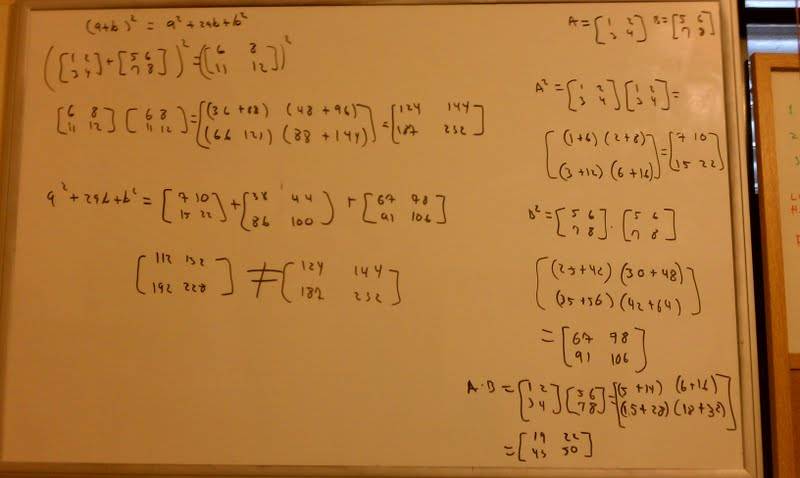 (a+b)² = a²+2ab+b²
([1 2 3 4] + [5 6 7 8])² = ([6 8 11 12])²
[6 8 11 12] [6 8 11 12] = [(36+88) (48+96) (66 121) (88+144)] = [124 144 187 232]
a²+2ab+b² = [7 10 15 22] + [38 44 86 100] + [67 98 91 106]
[112 152 192 228] ≠ [124 144 187 232]
A = [1 2 3 4] B = [5 6 7 8]
A² = [1 2 3 4] [1 2 3 4] =
[(1+6) (2+8) (3+12) (6+16)] = [7 10 15 22]
B² = [5 6 7 8] · [5 6 7 8]
[(25+42) (30+48) (35+56) (42+64)]
= [67 98 91 106]
A·B = [1 2 3 4] [5 6 7 8] = [(5+14) (6+16) (15+28) (18+32)]
= [19 22 43 50]